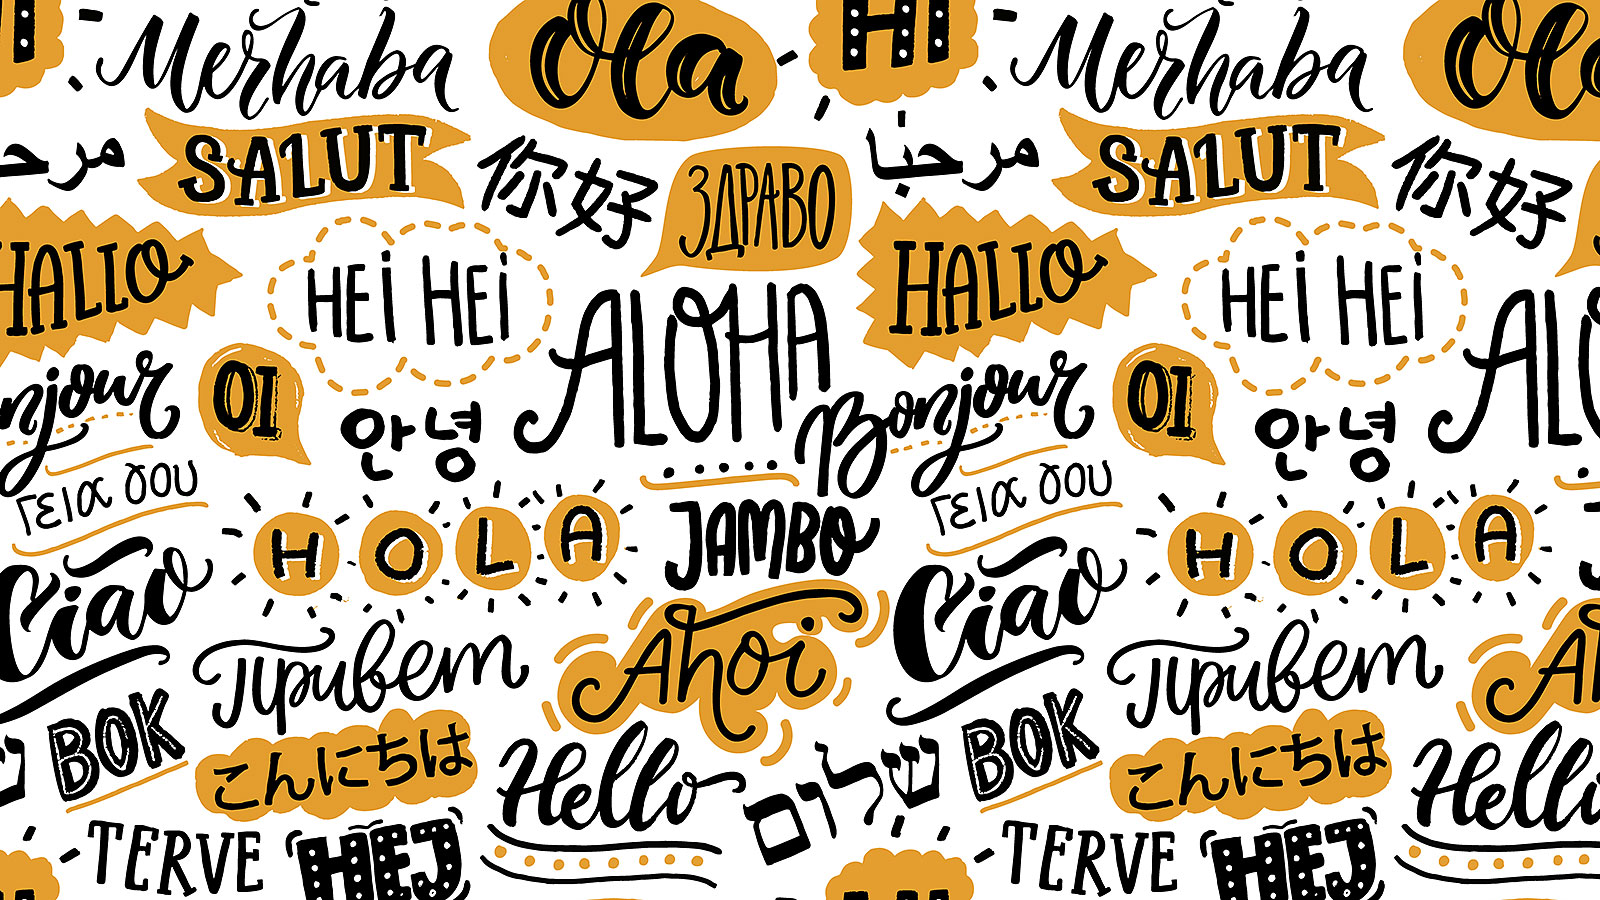 Merhaba
Ola
HI
Merhaba
SALUT
你好
ЗДРАВО
مرحبًا
SALUT
你好
HALLO
HEI HEI
ALOHA
HALLO
HEI HEI
AL
njour
OI
안녕
Bonjour
OI
안녕
Γεια σου
HOLA
JAMBO
Γεια σου
HOLA
Ciao
Привет
Ahoi
Ciao
Привет
BOK
こんにちは
Hello
שלום
BOK
こんにちは
Hello
TERVE
HEJ
TERVE
HEJ